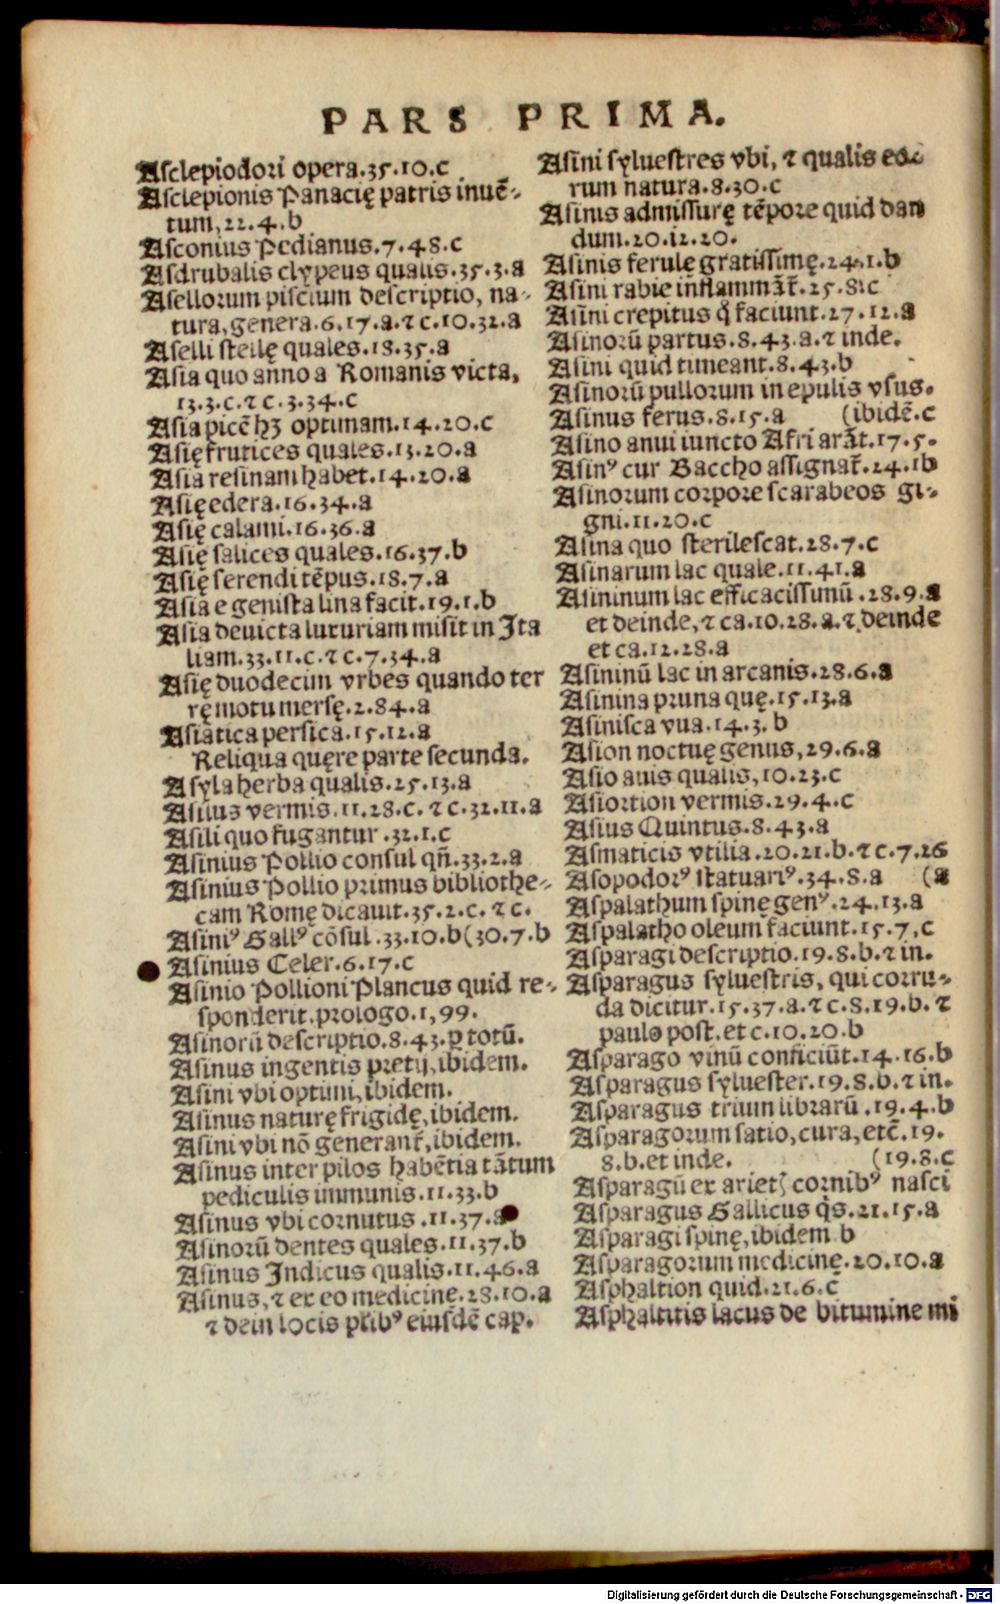 PARS PRIMA.
Asclepiodori opera.35.10.c
Asclepionis Panacię patris inuẽ-
tum,22.4.b
Asconius Pedianus.7.48.c
Asdrubalis clypeus qualis.35.3.a
Asellorum piscium descriptio, na-
tura,genera.6.17.a.⁊ c.10.32.a
Aselli stellę quales.18.35.a
Asia quo anno a Romanis victa,
13.3.c.⁊ c.3.34.c
Asia picẽ hʒ optimam.14.20.c
Asię frutices quales.13.20.a
Asia resinam habet.14.20.a
Asię edera.16.34.a
Asię calami.16.36.a
Asię salices quales.16.37.b
Asię serendi tẽpus.18.7.a
Asia e genista lina facit.19.1.b
Asia deuicta luxuriam misit in Ita
liam.33.11.c.⁊ c.7.34.a
Asię duodecim vrbes quando ter
rę motu mersę.2.84.a
Asiatica persica.15.12.a
Reliqua quęre parte secunda.
Asyla herba qualis.25.13.a
Asilus vermis.11.28.c. ⁊ c.32.11.a
Asili quo fugantur.32.1.c
Asinius Pollio consul qñ.33.2.a
Asinius Pollio primus bibliothe-
cam Romę dicauit.35.2.c.⁊ c.
Asiniꝰ Gallꝰ cõsul.33.10.b(30.7.b
Asinius Celer.6.17.c
Asinio Pollioni Plancus quid re-
sponderit,prologo.1,99.
Asinorũ descriptio.8.43.ꝑ totũ.
Asinus ingentis pretij,ibidem.
Asini vbi optimi,ibidem.
Asinus naturę frigidę,ibidem.
Asini vbi nõ generant̃,ibidem.
Asinus inter pilos habẽtia tãtum
pediculis immunis.11.33.b
Asinus vbi cornutus.11.37.a
Asinorũ dentes quales.11.37.b
Asinus Indicus qualis.11.46.a
Asinus,⁊ ex eo medicinę.28.10.a
⁊ dein locis plibꝰ eiusdẽ cap.
Asini syluestres vbi, ⁊ qualis eo
rum natura.8.30.c
Asinis admissurę tẽpore quid dan
dum.20.12.20.
Asinis ferulę gratissimę.24.1.b
Asini rabie inflammãt̃.25.8.c
Asini crepitus q̃ faciunt.27.12.a
Asinorũ partus.8.43.a.⁊ inde.
Asini quid timeant.8.43.b
Asinorũ pullorum in epulis vsus.
Asinus ferus.8.15.a (ibidẽ.c
Asino anui iuncto Afri arãt.17.5.
Asinꝰ cur Baccho assignat̃.24.1b
Asinorum corpore scarabeos gi-
gni.11.20.c
Asina quo sterilescat.28.7.c
Asinarum lac quale.11.41.a
Asininum lac efficacissimũ.28.9.a
et deinde,⁊ ca.10.28.a.⁊ deinde
et ca.12.28.a
Asininũ lac in arcanis.28.6.a
Asinina pruna quę.15.13.a
Asinisca vua.14.3.b
Asion noctuę genus,29.6.a
Asio auis qualis,10.23.c
Asiortion vermis.29.4.c
Asius Quintus.8.43.a
Asmaticis vtilia.20.21.b.⁊ c.7.26
Asopodorꝰ statuariꝰ.34.8.a (a
Aspalathum spinę genꝰ.24.13.a
Aspalatho oleum faciunt.15.7,c
Asparagi descriptio.19.8.b.⁊ in.
Asparagus syluestris, qui corru-
da dicitur.15.37.a.⁊ c.8.19.b.⁊
paulo post.et c.10.20.b
Asparago vinũ conficiũt.14.16.b
Asparagus syluester.19.8.b.⁊ in.
Asparagus trium librarũ.19.4.b
Asparagorum satio,cura,etc̃.19.
8.b.et inde. (19.8.c
Asparagũ ex arietꝭ cornibꝰ nasci
Asparagus Gallicus q̃s.21.15.a
Asparagi spinę,ibidem b
Asparagorum medicinę.20.10.a
Asphaltion quid.21.6.c
Asphaltitis lacus de bitumine mi
Digitalisierung gefördert durch die Deutsche Forschungsgemeinschaft - DFG